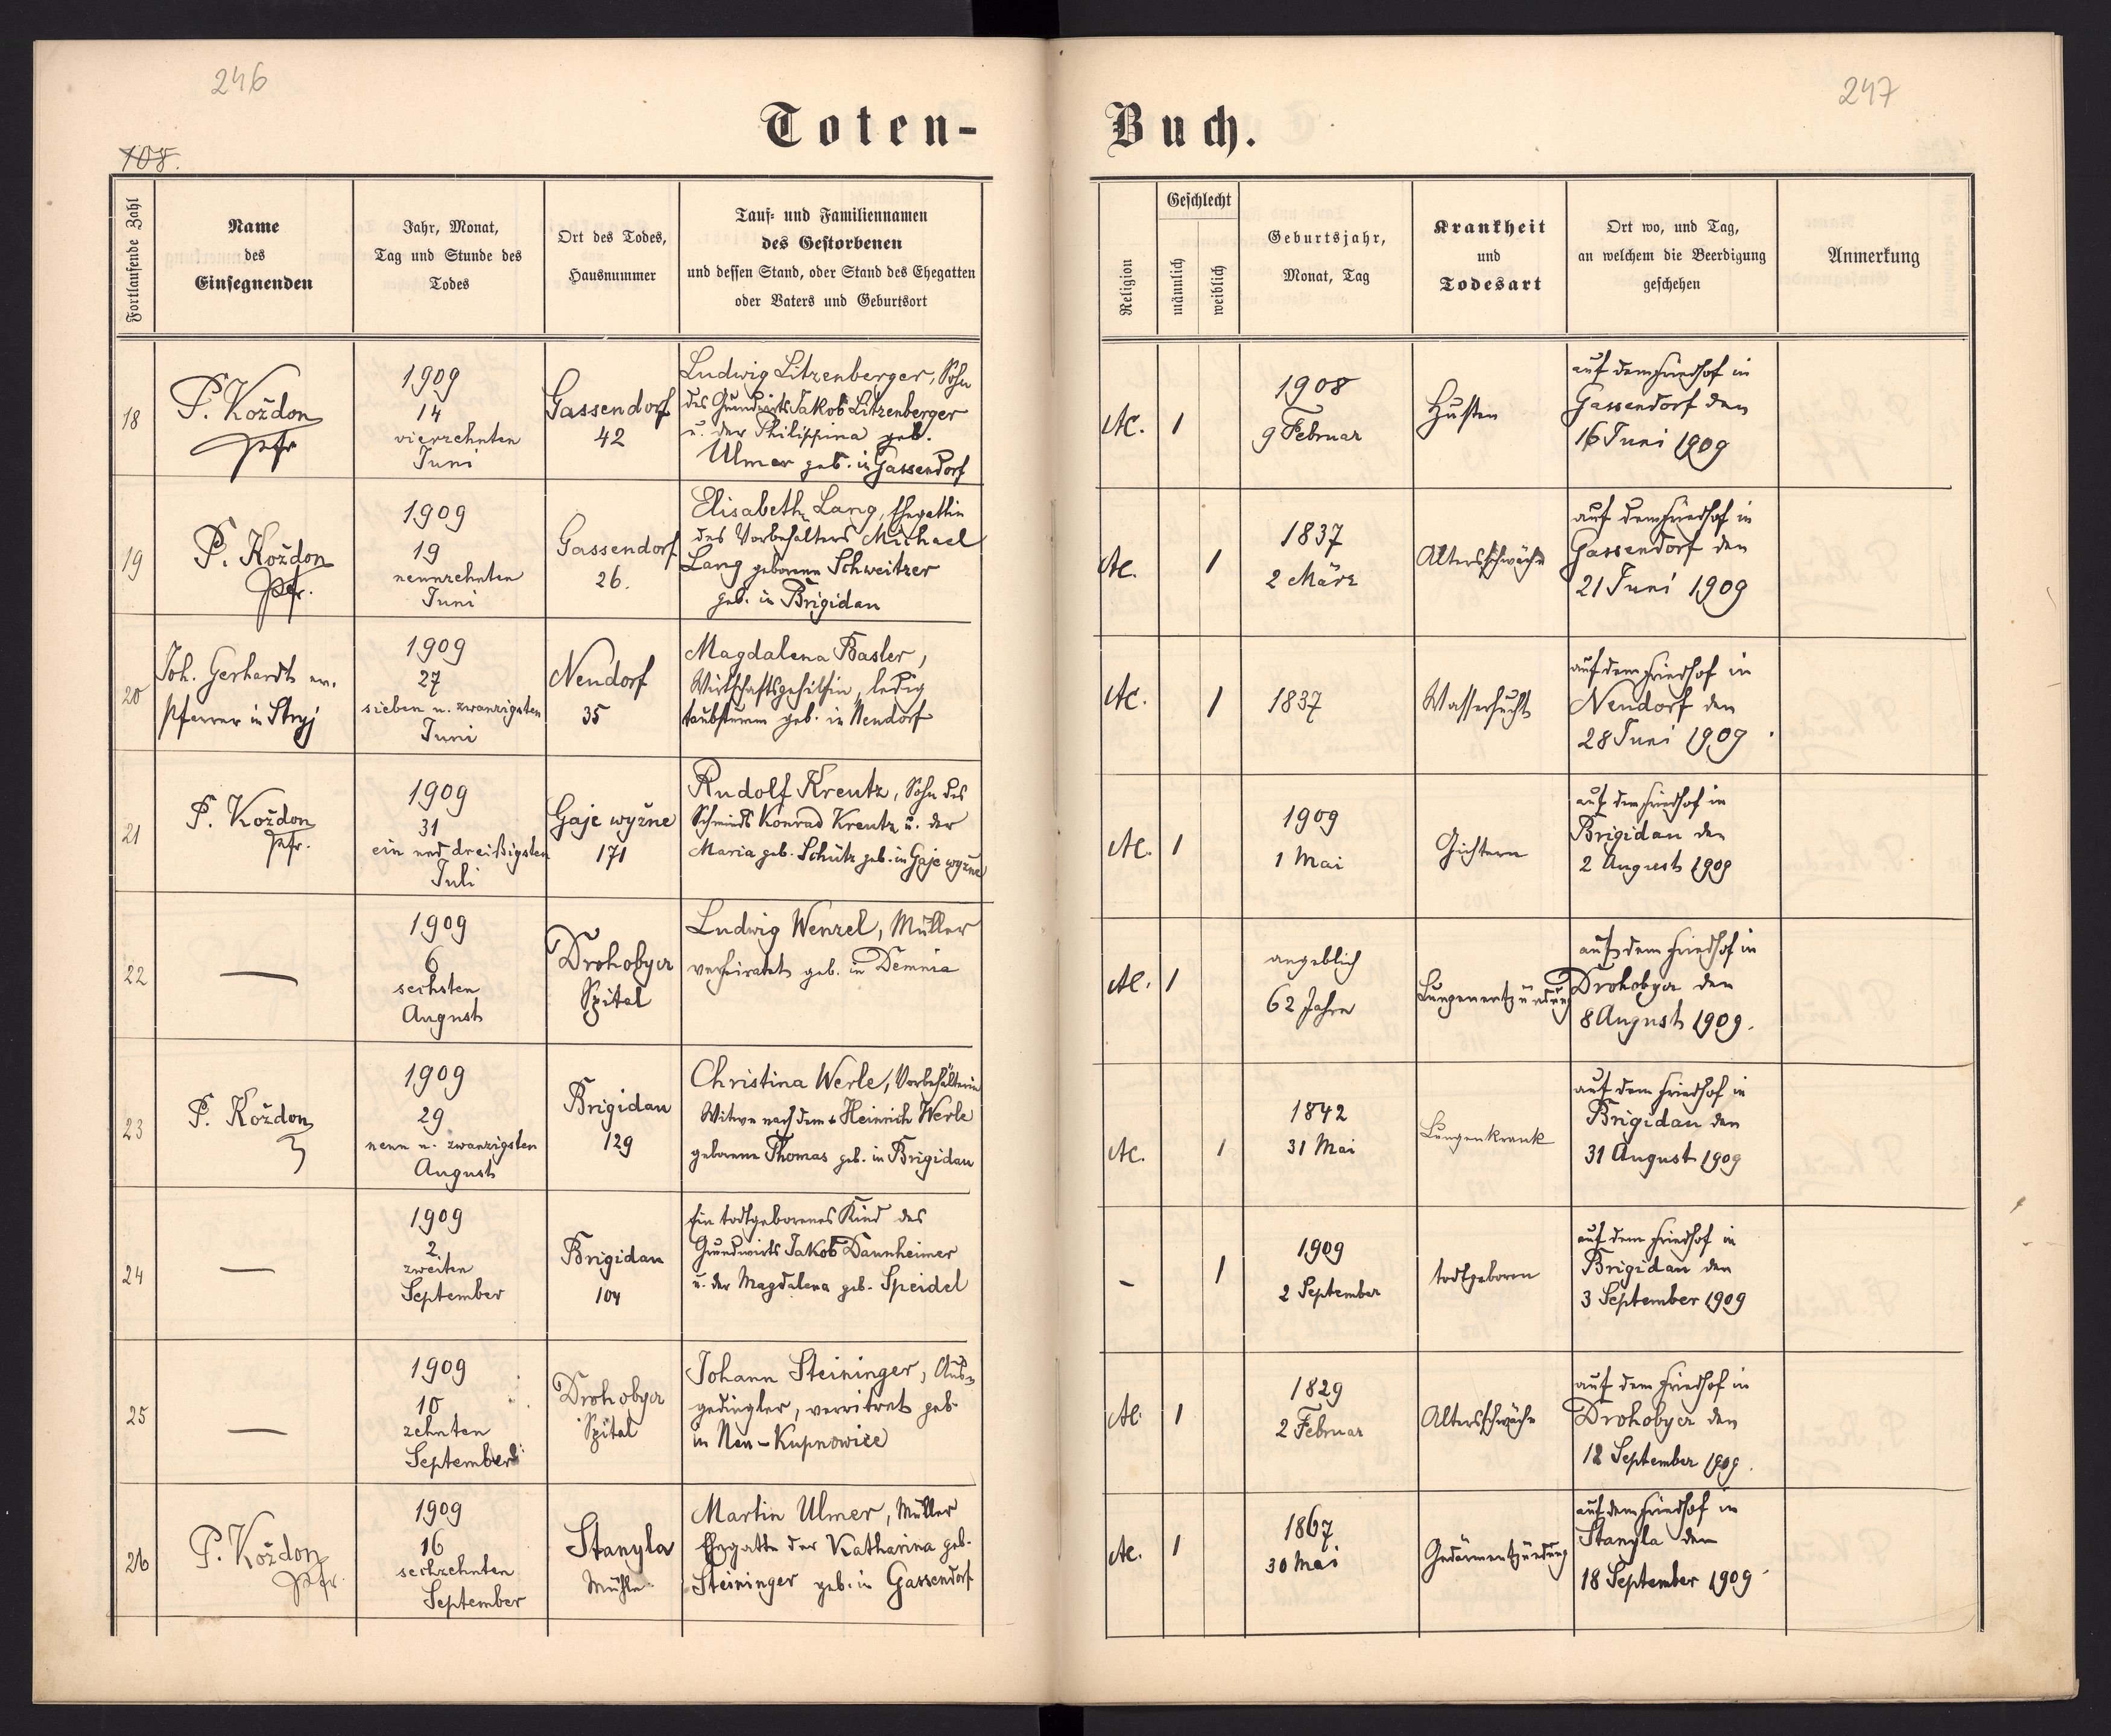 246
247
Toten-
Buch.
108.
Fortlaufende Zahl
Name
des
Einsegnenden
Jahr, Monat,
Tag und Stunde des
Todes
Ort des Todes,
Hausnummer
Tauf- und Familiennamen
des Gestorbenen
und dessen Stand, oder Stand des Ehegatten
oder Vaters und Geburtsort
Religion
Geschlecht
männlich
weiblich
Geburtsjahr,
Monat, Tag
Krankheit
und
Todesart
Ort wo, und Tag,
an welchem die Beerdigung
geschehen
Anmerkung
18
P. Koždon
Pfr
1909
14
vierzehnten
Juni
Gassendorf
42
Ludwig Litzenberger, Sohn
des Grundwirts Jakob Litzenberger
u. der Philippina geb.
Ulmer geb. in Gassendorf
AC.
1
1908
9 Februar
Husten
auf dem Friedhof in
Gassendorf den
16 Juni 1909
19
P. Koždon
Pfr.
1909
19
neunzehnten
Juni
Gassendorf
26.
Elisabeth Lang, Ehegattin
des Vorbehalters Michael
Lang geborene Schweitzer
geb. in Brigidau
AC.
1
1837
2 März
Altersschwäche
auf dem Friedhof in
Gassendorf den
21 Juni 1909
20
Joh. Gerhardt ev.
Pfarrer in Stryj
1909
27
sieben u. zwanzigsten
Juni
Neudorf
35
Magdalena Basler,
Wirtschaftsgehilfin, ledig
taubstumm geb. in Neudorf
AC.
1
1837
Wassersucht
auf dem Friedhof in
Neudorf den
28 Juni 1909
21
P. Koždon
Pfr.
1909
31
ein und dreißigsten
Juli
Gaje wyżne
171
Rudolf Kreutz, Sohn des
Schmieds Konrad Kreutz u. der
Maria geb. Schütz geb. in Gaje wyżne
AC.
1
1909
1 Mai
Gichtern
auf dem Friedhof in
Brigidau den
2 August 1909
22
—
1909
6
sechsten
August
Drohobycz
Spital
Ludwig Wenzel, Müller
verheiratet geb. in Demnia
AC.
1
angeblich
62 Jahre
Lungenentzündung
auf dem Friedhof in
Drohobycz den
8 August 1909.
23
P. Koždon
1909
29
neun u. zwanzigsten
August
Brigidau
129
Christina Werle, Vorbehälterin
Witwe nach dem + Heinrich Werle
geborene Thomas geb. in Brigidau
AC.
1
1842
31 Mai
Lungenkrank
auf dem Friedhof in
Brigidau den
31 August 1909
24
—
1909
2
zweiten
September
Brigidau
104
Ein todtgeborenes Kind des
Grundwirts Jakob Dannheimer
u. der Magdalena geb. Speidel
-
1
1909
2 September
todtgeboren
auf dem Friedhof in
Brigidau den
3 September 1909
25
—
1909
10
zehnten
September
Drohobycz
Spital
Johann Steininger, Aus=
gedingler, verwitwet geb.
in Neu-Kupnowice
AC.
1
1829
2 Februar
Altersschwäche
auf dem Friedhof in
Drohobycz den
12 September 1909.
26
P. Koždon
Pfr.
1909
16
sechzehnten
September
Stanyla
Mühle
Martin Ulmer, Müller
Ehegatte der Katharina geb.
Steininger geb. in Gassendorf
AC.
1
1867
30 Mai
Gedärmentzündung
auf dem Friedhof in
Stanyla den
18 September 1909